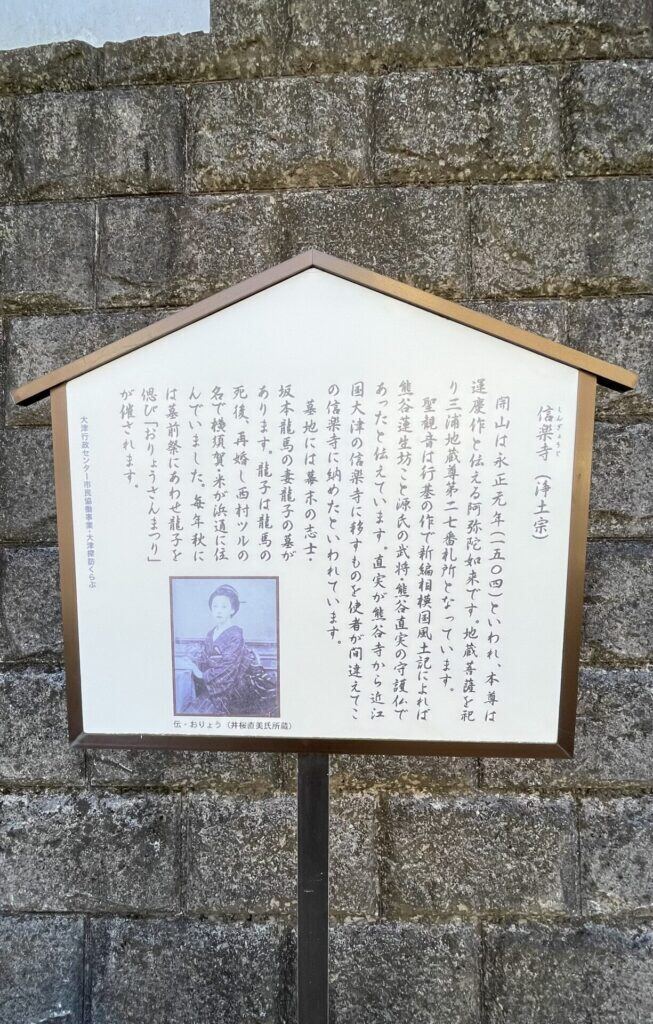 しんぎょうじ
信楽寺　(浄土宗)
開山は永正元年(一五〇四)といわれ、本尊は
運慶作と伝える阿弥陀如来です。地蔵菩薩を祀
り三浦地蔵尊第二七番札所となっています。
聖観音は行基の作で新編相模国風土記によれば
熊谷蓮生坊こと源氏の武将・熊谷直実の守護仏で
あったと伝えています。直実が熊谷寺から近江
国大津の信楽寺に移すものを使者が間違えてこ
の信楽寺に納めたといわれています。
墓地には幕末の志士・
坂本龍馬の妻龍子の墓が
あります。龍子は龍馬の
死後、再婚し西村ツルの
名で横須賀・米が浜通に住
んでいました。毎年秋に
は墓前祭にあわせ龍子を
偲び「おりょうさんまつり」
が催されます。
伝・おりょう（井桜直美氏所蔵）
大津行政センター市民協働事業・大津探訪くらぶ